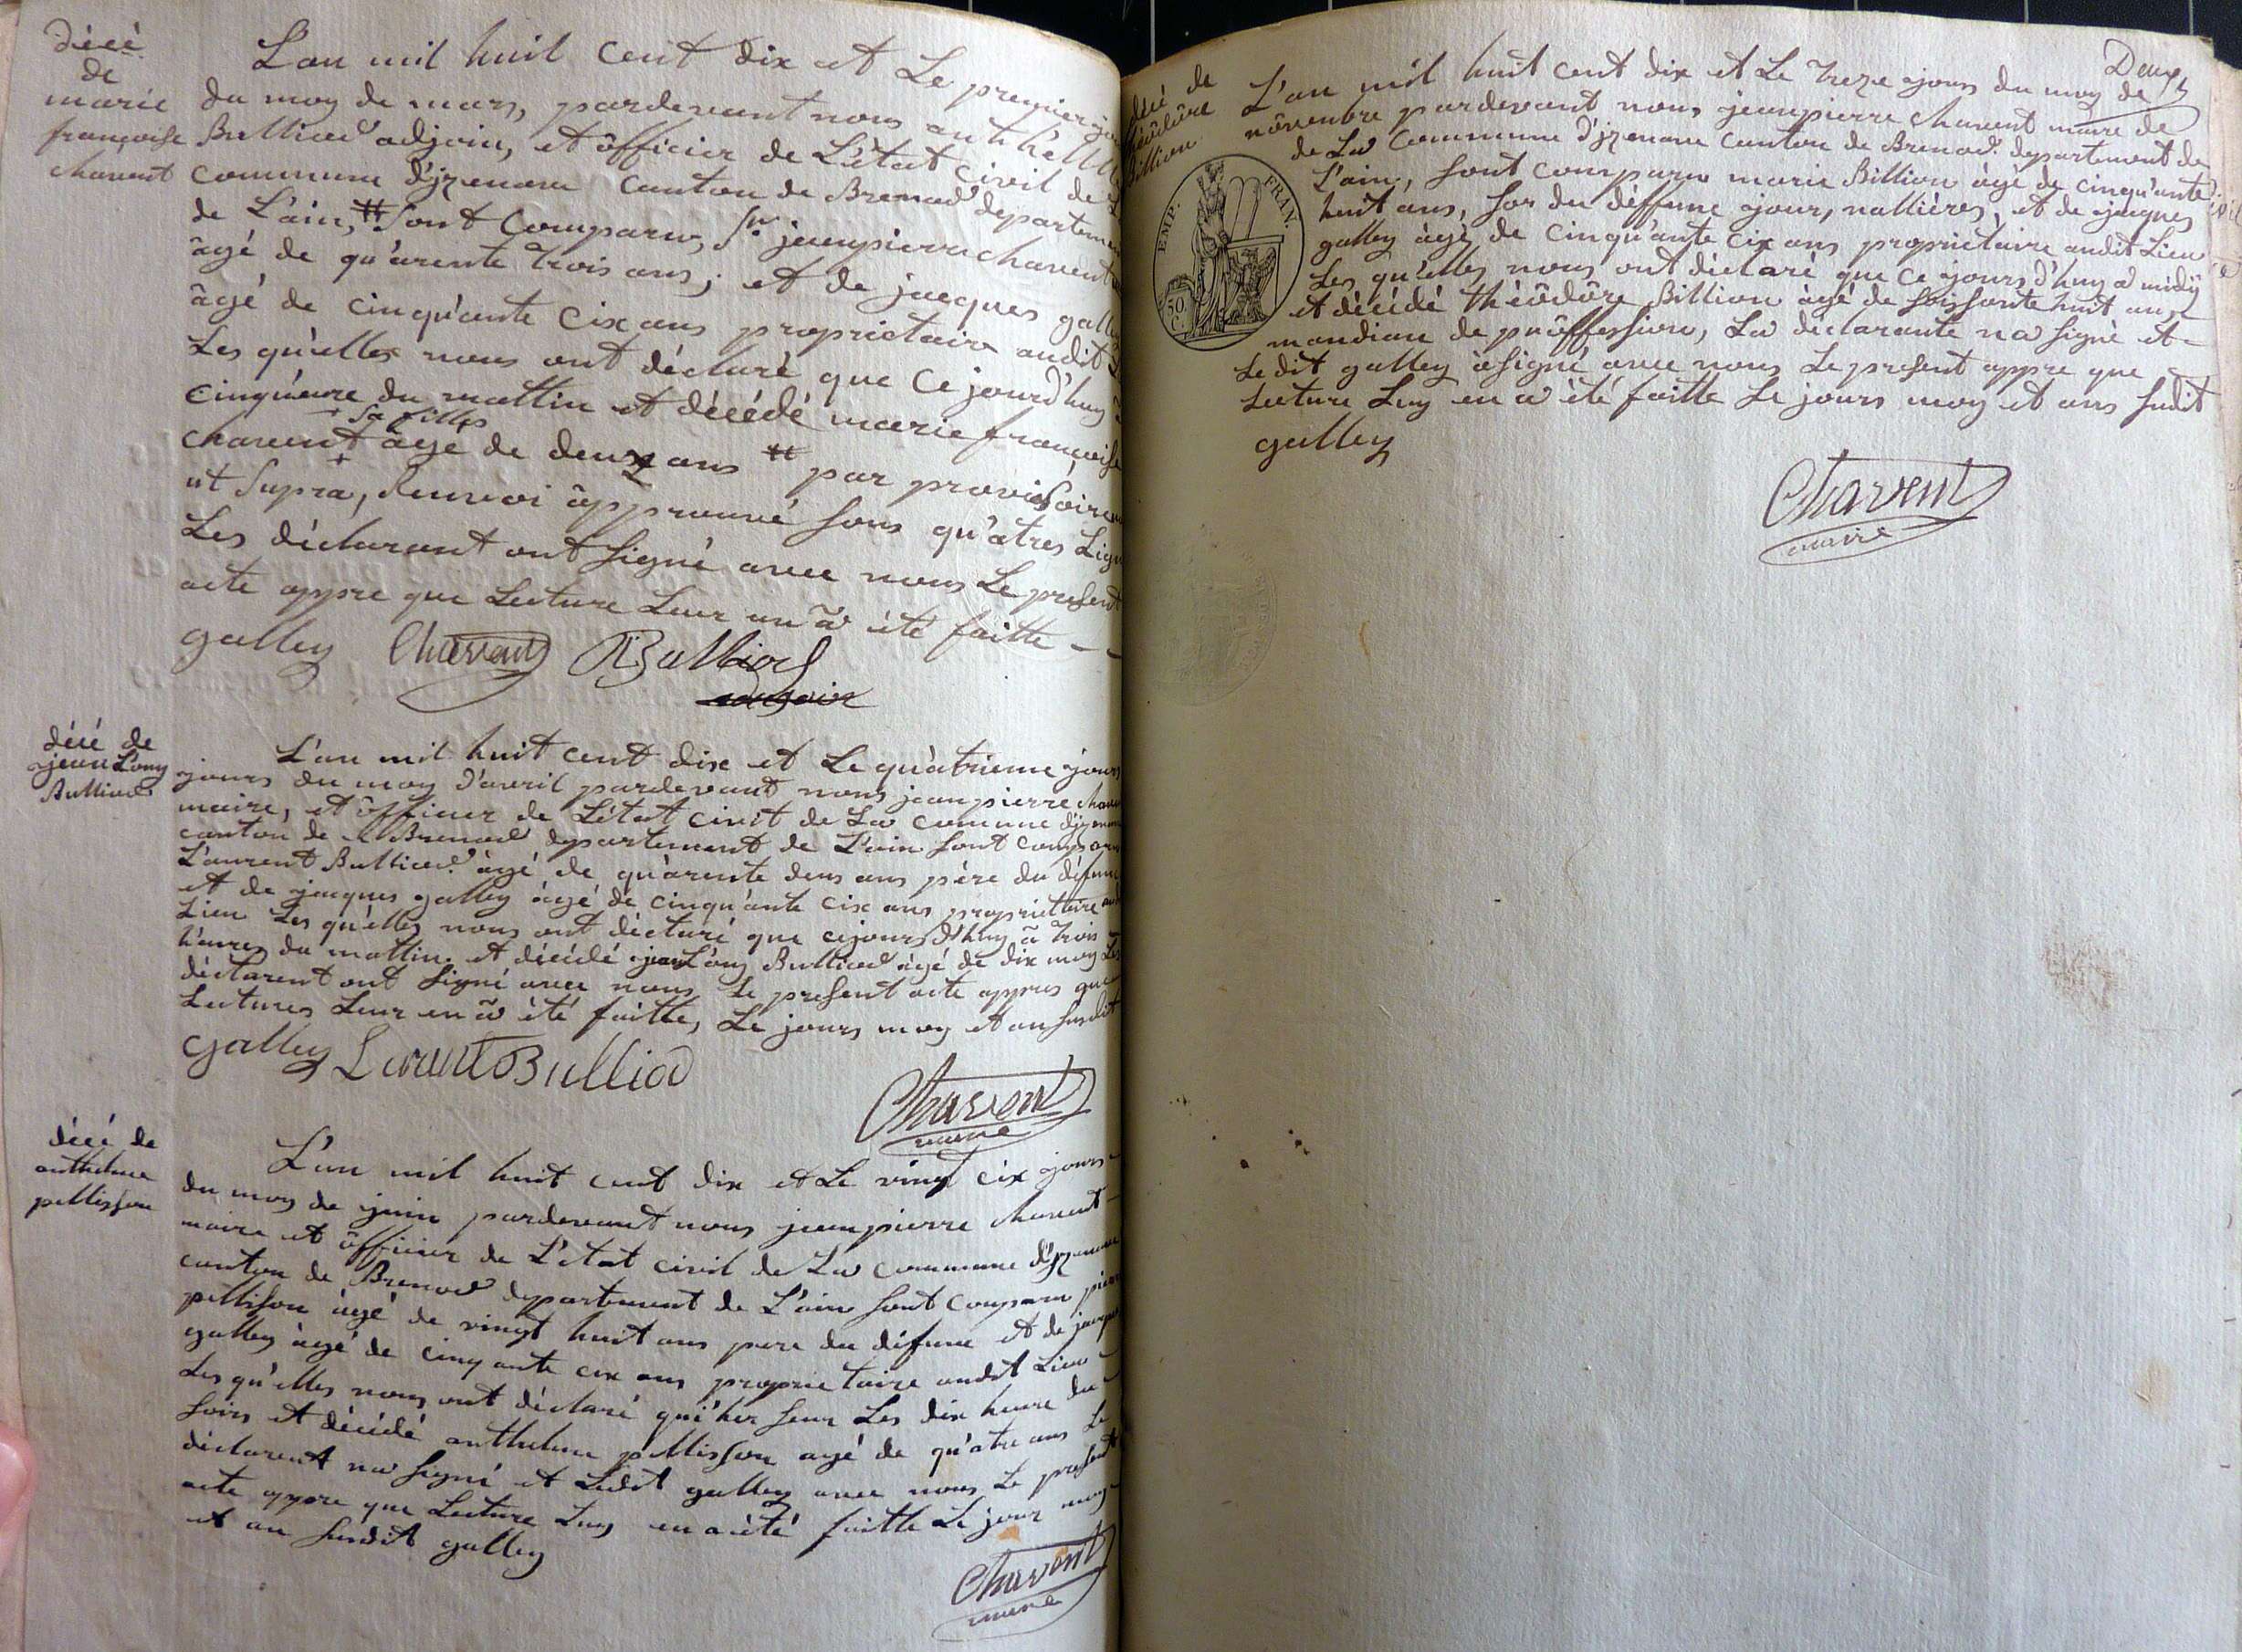 décé
de
marie
françoise
chavent
L'an mil huit cent dix et Le premier
du moy de mars, pardevant nous
Bulliod adjoin, et ôfficier de L'état civil de
commune d'jzenave canton de Brenod departeme
de L'ain, # sont comparu, Sr. jeanpierre chavent
âgé de qu'arente trois ans, et de jacques
âgé de cinqu'ante cix ans proprietaire audit
Les qu'elles nous ont déclaré que ce jourd'huy
cinqu'eure du mattin et décédé marie françoise
+ sa fille
chavent agé de deux ans # par provisoire
ut supra, Renvoi âpprouvé sous qu'âtres Lign
Les déclarant ont signé avec nous Le present
acte appre que Lecture Leur en â été faitte
galley Chavent Bulliod
décé de
jean Louy
Bulliod
L'an mil huit cent dix et Le qu'atrieme jours
jours du moy d'avril pardevant nous jeanpierre
maire, et ôfficier de L'état civil de La commune
canton de Brenod departement de L'ain sont
L'aurent Bulliod âgé de qu'arente deus ans père du défunc
et de jacques galley âgé de cinqu'ante cix ans proprietaire
Lieu Les qu'elles nous ont déclaré que cejours d'huy â trois
h'eures du mattin et décédé jean Louy Bulliod âgé de dix moy Les
déclarent ont signé avec nous Le present acte appres que
Lectures Leur en â été faitte, Le jours moy et an susdit
galley Laurent Bulliod
Chavent
maire
décé de
anthelme
pellisson
L'an mil huit cent dix et Le vingt cix jours
du moy de juin pardevant nous jeanpierre chavent
maire et ôfficier de L'état civil de La commune
canton de Brenod departement de L'ain sont comparu
pellison âgé de vingt huit ans pere du défunc et de
galley âgé de cinqante cix ans proprietaire audit Lieu
Les qu'elles nous ont déclaré qu'hier seur Les dix heure du
soirs et décédé anthelme pellisson agé de qu'atre ans Le
déclarent na signé et Ledit galley avec nous Le present
acte appre que Lecture Luy en a été faitte Le jour moy
et an susdit galley
Chavent
maire
Deux
décé de
théôdôre
Billion
EMP. FRAN.
50 C.
L'an mil huit cent dix et Le treze jours du moy de
nôvenbre pardevant nous jeanpierre chavent maire de
de La Commune d'jzenave canton de Brenod departement de
L'ain, sont comparu marie Billion âgé de cinqu'ante
huit ans, sor du déffunc jours, nallières, et de jacques
galley âgé de cinqu'ante cix ans proprietaire audit Lieu
Les qu'elles nous ont déclaré que ce jours d'huy a midy
et décédé théôdôre Billion âgé de soissante huit ans
mandian de prôffession, La déclarante na signé et
Ledit galley â signé avec nous Le present appre que
Lecture Luy en a été faitte Le jours moy et ans susdit
galley
Chavent
maire